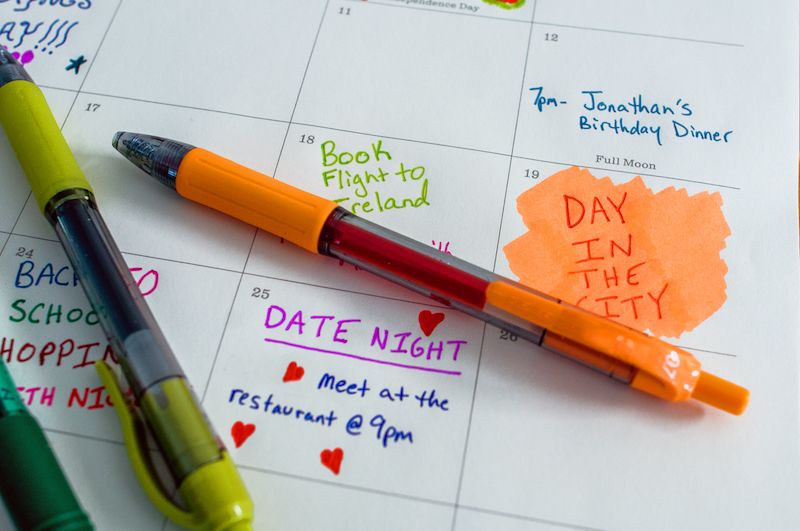 Independence Day
11
12
7pm- Jonathan's
Birthday Dinner
Full Moon
17
18
Book
Flight to
Ireland
19
DAY
IN
THE
CITY
24
BACK TO
SCHOOL
SHOPPING
25
DATE NIGHT
Meet at the
restaurant @ 9pm
26